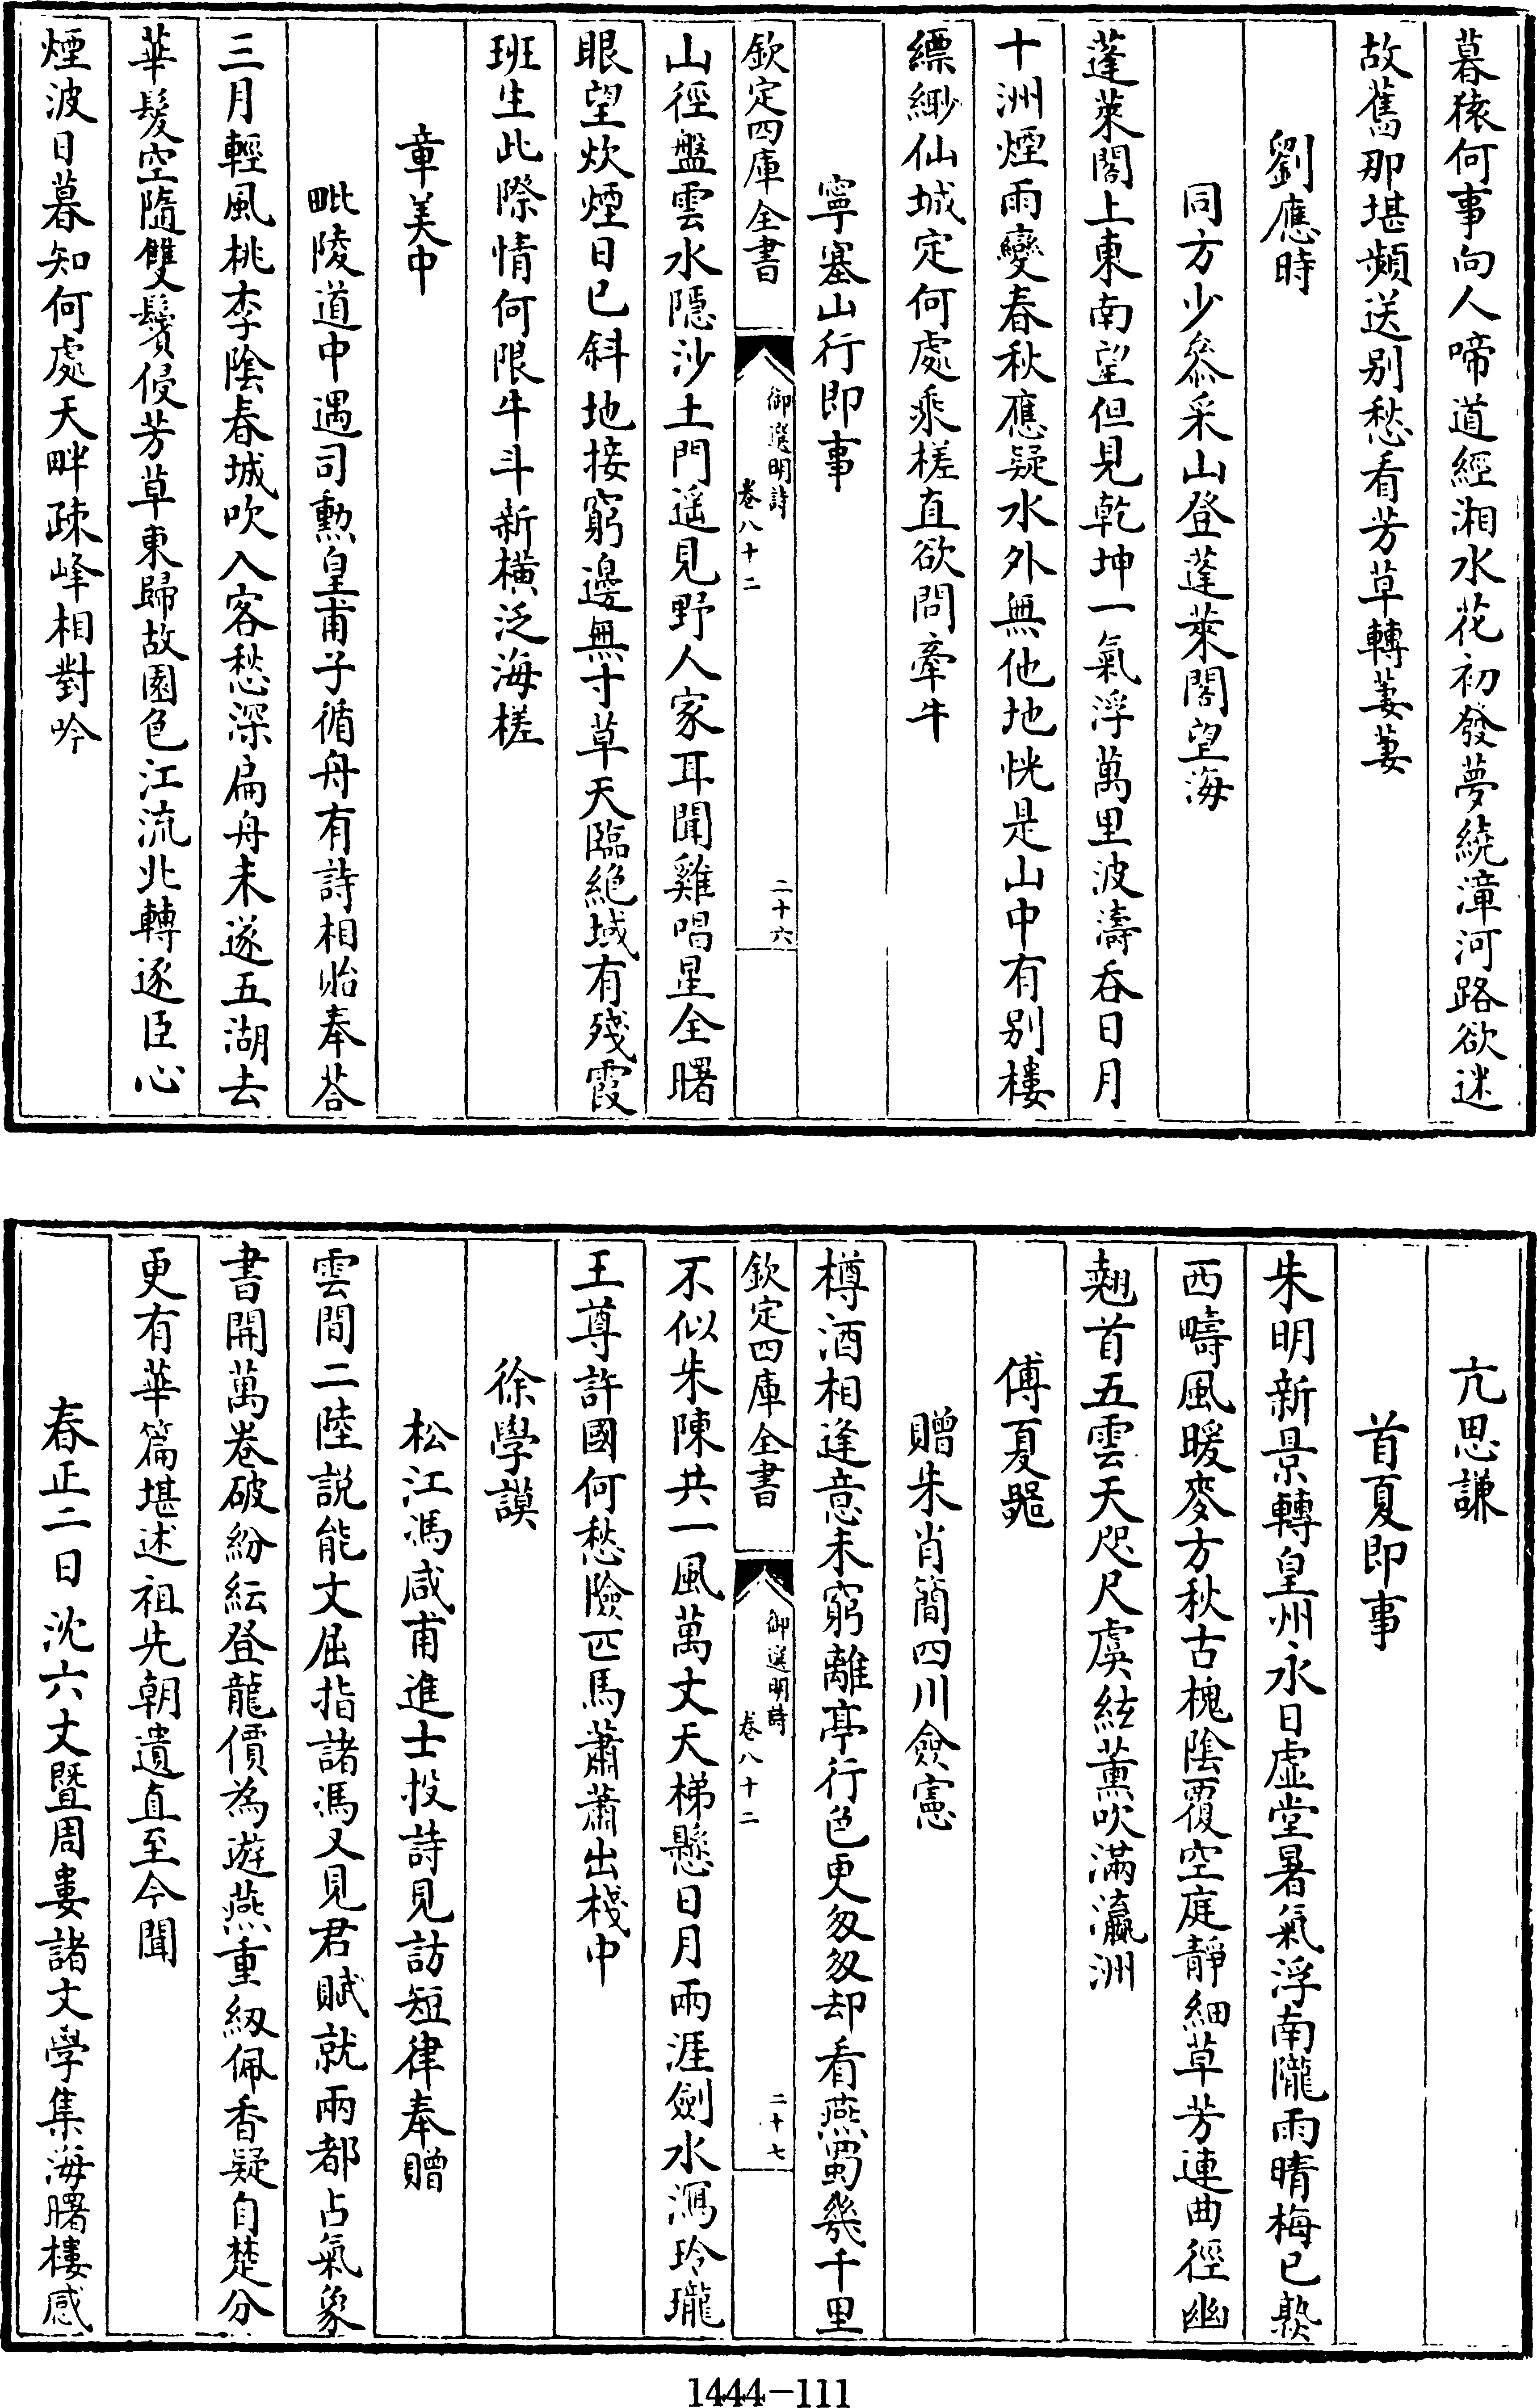 暮猿何事向人啼道經湘水花初發夢繞漳河路欲迷
故舊那堪頻送別愁看芳草轉萋萋
劉應時
同方少參采山登蓬萊閣望海
蓬萊閣上東南望但見乾坤一氣浮萬里波濤吞日月
十洲煙雨變春秋應疑水外無他地恍是山中有別樓
縹緲仙城定何處乘槎直欲問牽牛
寧塞山行即事
欽定四庫全書
御選明詩
卷八十二
二十六
山徑盤雲水隱沙土門遥見野人家耳聞雞唱星全曙
眼望炊煙日已斜地接窮邊無寸草天臨絶域有殘霞
班生此際情何限牛斗新橫泛海槎
章美中
毗陵道中遇司勲皇甫子循舟有詩相貽奉荅
三月輕風桃李陰春城吹入客愁深扁舟未遂五湖去
華髮空隨雙鬢侵芳草東歸故園色江流北轉逐臣心
煙波日暮知何處天畔疎峰相對吟
亢思謙
首夏即事
朱明新景轉皇州永日虚堂暑氣浮南隴雨晴梅已熟
西疇風暖麥方秋古槐陰覆空庭靜細草芳連曲徑幽
翹首五雲天咫尺虞絃薰吹滿瀛洲
傅夏噐
贈朱肖簡四川僉憲
樽酒相逢意未窮離亭行色更匆匆却看燕蜀幾千里
欽定四庫全書
御選明詩
卷八十二
二十七
不似朱陳共一風萬丈天梯懸日月兩涯劍水瀉玲瓏
王尊許國何愁險匹馬蕭蕭出棧中
徐學謨
松江馮咸甫進士投詩見訪短律奉贈
雲間二陸説能文屈指諸馮又見君賦就兩都占氣象
書開萬卷破紛紜登龍價為遊燕重紉佩香疑自楚分
更有華篇堪述祖先朝遺直至今聞
春正二日沈六丈暨周婁諸文學集海曙樓感
1444-111